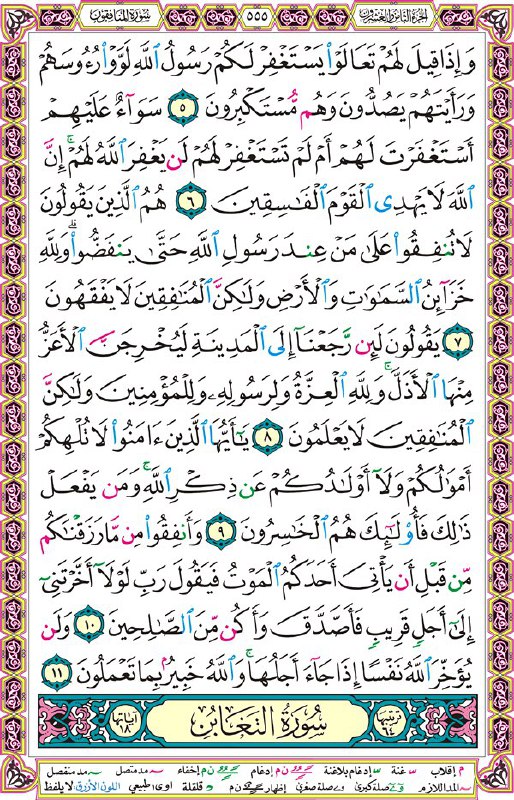 سورة المنافقون ٥٥٥ الجزء الثامن والعشرون
وَإِذَا قِيلَ لَهُمْ تَعَالَوْا۟ يَسْتَغْفِرْ لَكُمْ رَسُولُ ٱللَّهِ لَوَّوْا۟ رُءُوسَهُمْ
وَرَأَيْتَهُمْ يَصُدُّونَ وَهُم مُّسْتَكْبِرُونَ ٥ سَوَآءٌ عَلَيْهِمْ
أَسْتَغْفَرْتَ لَهُمْ أَمْ لَمْ تَسْتَغْفِرْ لَهُمْ لَن يَغْفِرَ ٱللَّهُ لَهُمْ ۚ إِنَّ
ٱللَّهَ لَا يَهْدِى ٱلْقَوْمَ ٱلْفَـٰسِقِينَ ٦ هُمُ ٱلَّذِينَ يَقُولُونَ
لَا تُنفِقُوا۟ عَلَىٰ مَنْ عِندَ رَسُولِ ٱللَّهِ حَتَّىٰ يَنفَضُّوا۟ ۗ وَلِلَّهِ
خَزَآئِنُ ٱلسَّمَـٰوَٰتِ وَٱلْأَرْضِ وَلَـٰكِنَّ ٱلْمُنَـٰفِقِينَ لَا يَفْقَهُونَ
٧ يَقُولُونَ لَئِن رَّجَعْنَآ إِلَى ٱلْمَدِينَةِ لَيُخْرِجَنَّ ٱلْأَعَزُّ
مِنْهَا ٱلْأَذَلَّ ۚ وَلِلَّهِ ٱلْعِزَّةُ وَلِرَسُولِهِۦ وَلِلْمُؤْمِنِينَ وَلَـٰكِنَّ
ٱلْمُنَـٰفِقِينَ لَا يَعْلَمُونَ ٨ يَـٰٓأَيُّهَا ٱلَّذِينَ ءَامَنُوا۟ لَا تُلْهِكُمْ
أَمْوَٰلُكُمْ وَلَآ أَوْلَـٰدُكُمْ عَن ذِكْرِ ٱللَّهِ ۚ وَمَن يَفْعَلْ
ذَٰلِكَ فَأُو۟لَـٰٓئِكَ هُمُ ٱلْخَـٰسِرُونَ ٩ وَأَنفِقُوا۟ مِن مَّا رَزَقْنَـٰكُم
مِّن قَبْلِ أَن يَأْتِىَ أَحَدَكُمُ ٱلْمَوْتُ فَيَقُولَ رَبِّ لَوْلَآ أَخَّرْتَنِىٓ
إِلَىٰٓ أَجَلٍ قَرِيبٍ فَأَصَّدَّقَ وَأَكُن مِّنَ ٱلصَّـٰلِحِينَ ١٠ وَلَن
يُؤَخِّرَ ٱللَّهُ نَفْسًا إِذَا جَآءَ أَجَلُهَا ۚ وَٱللَّهُ خَبِيرٌۢ بِمَا تَعْمَلُونَ ١١
ترتيبها ٦٤ سُورَةُ التَّغَابُنِ آياتها ١٨
م إقلاب غنة إدغام بلاغنة ن م إدغام ن م إخفاء مد متصل مد منفصل
المد اللازم صلة كبرى صلة صغرى إظهار ن م قلقلة طبيعي اللون الأزرق لا يلفظ